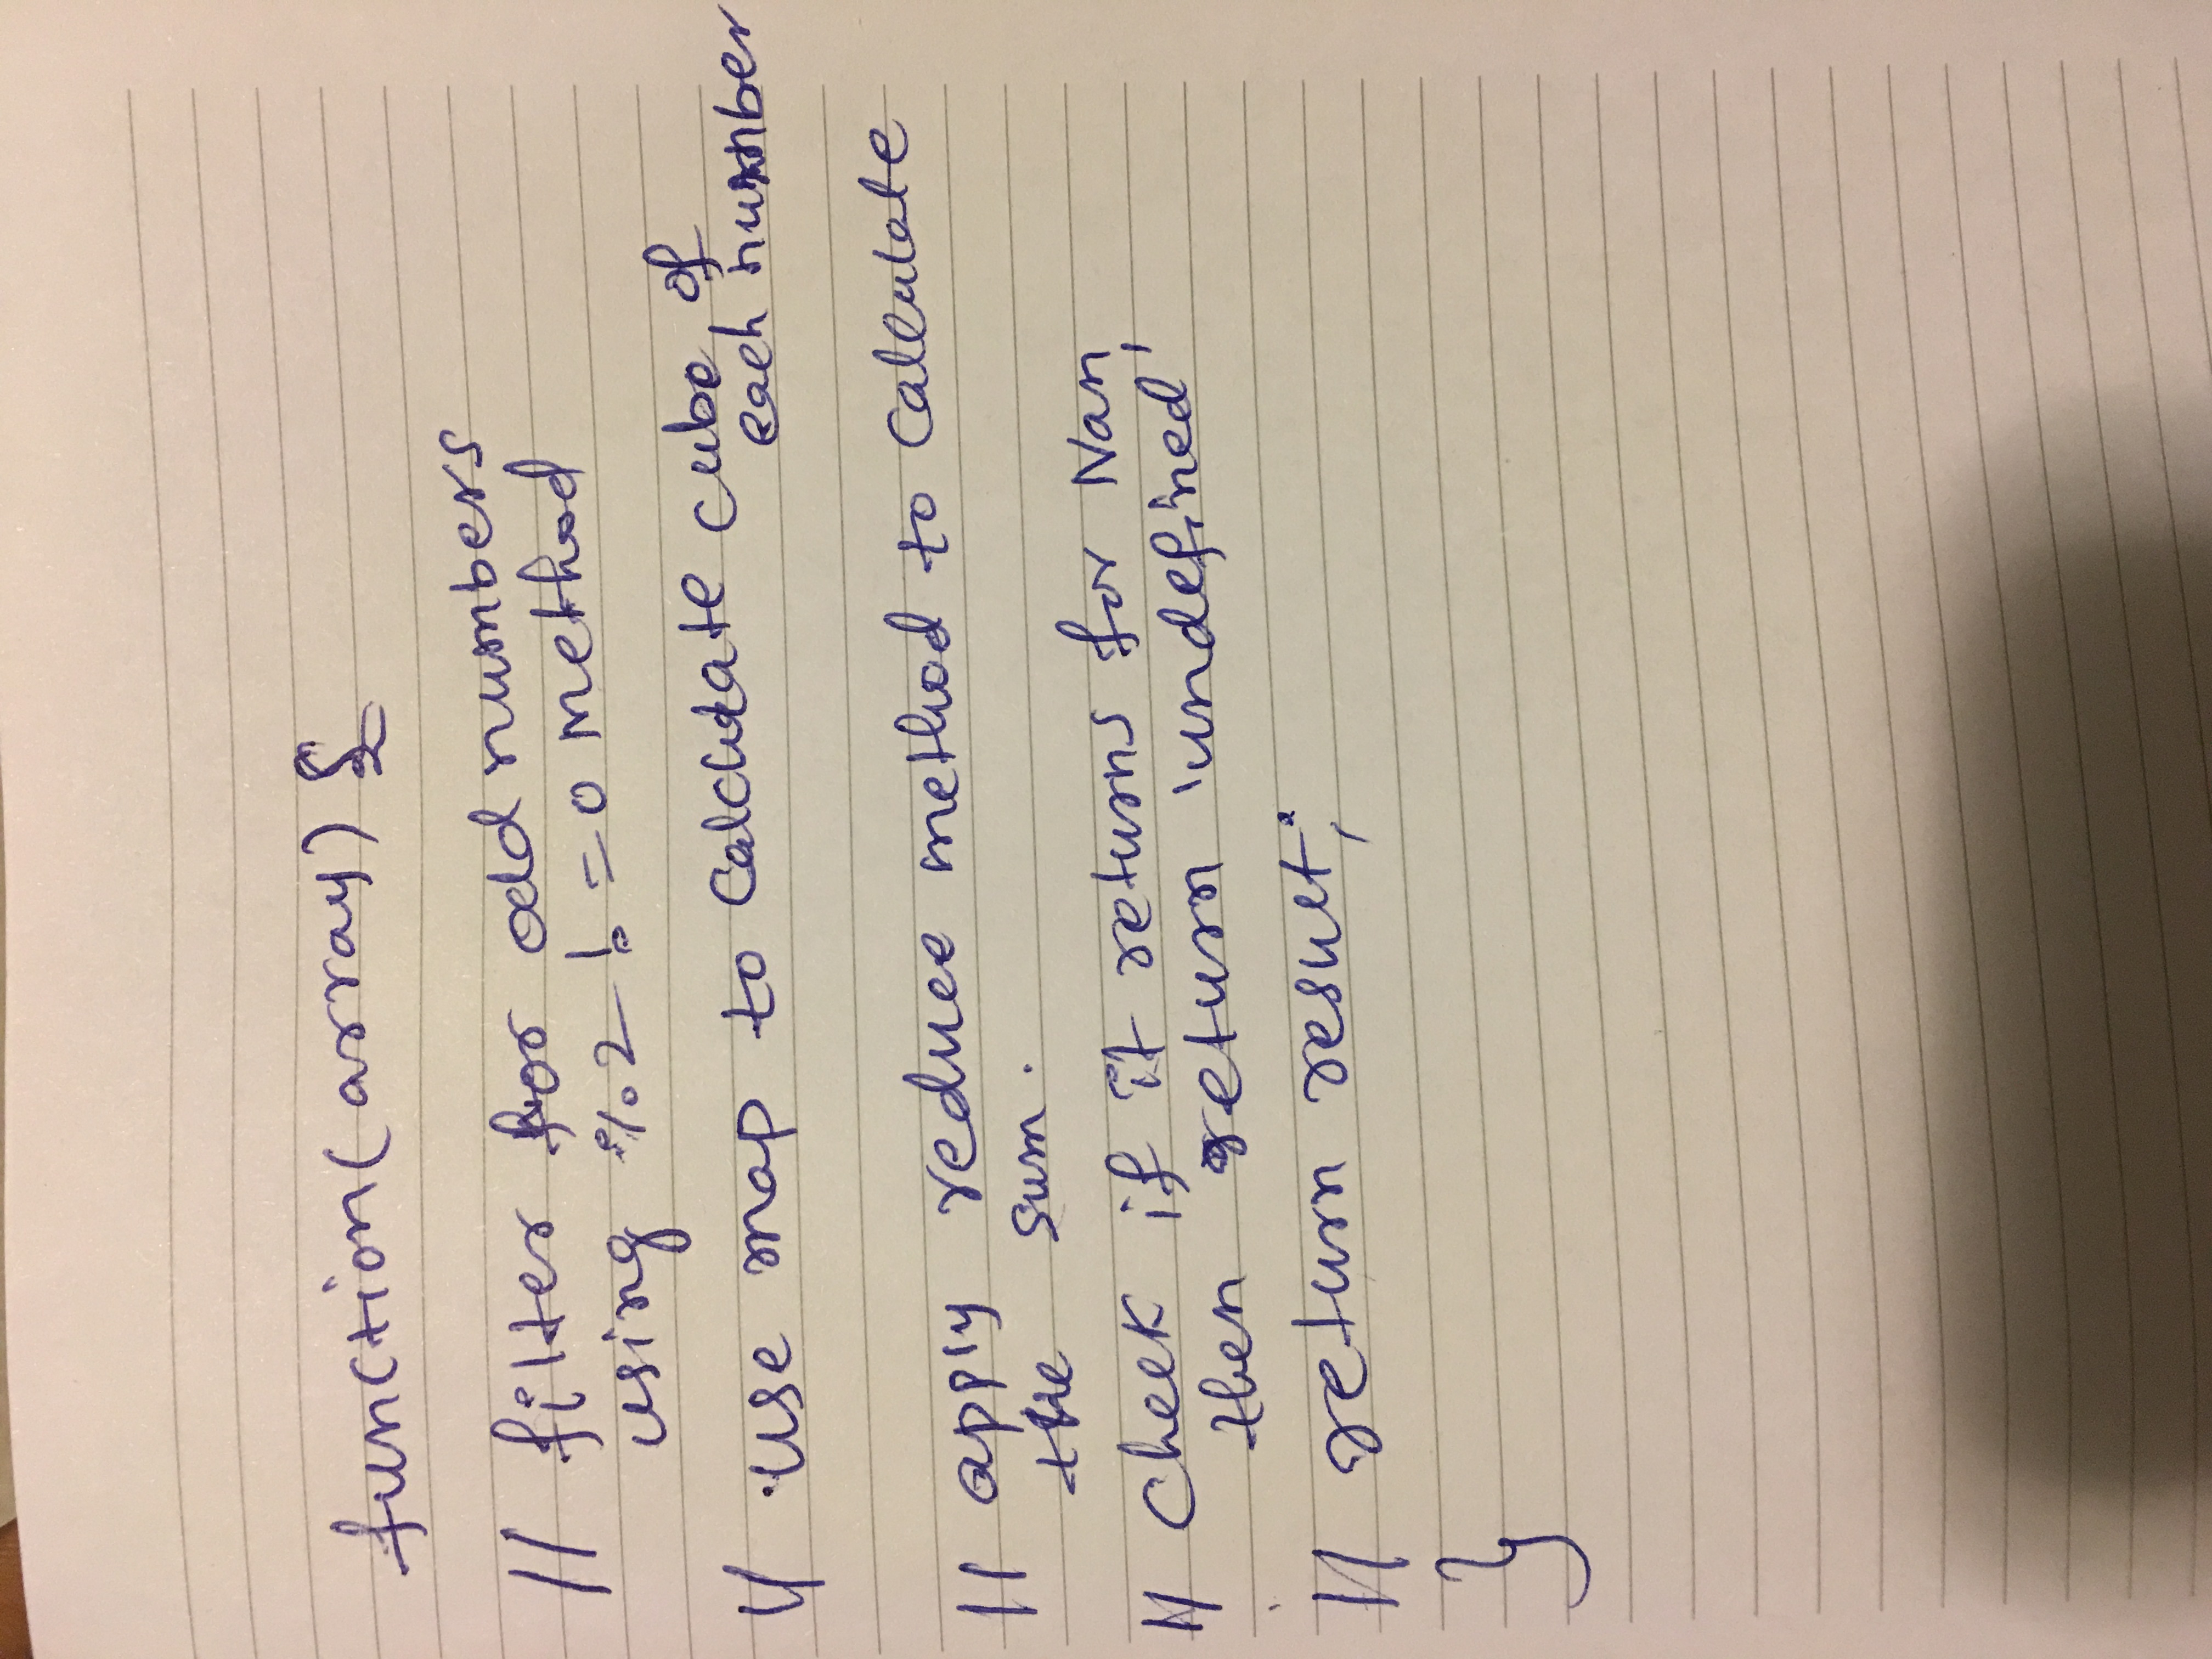 function(array) {
// filter for odd numbers
using %2 != 0 method
// use map to Calculate cube of
each number
// apply reduce method to Calculate
the sum.
// Check if it returns for Nan,
then return 'undefined'
// return result;
}